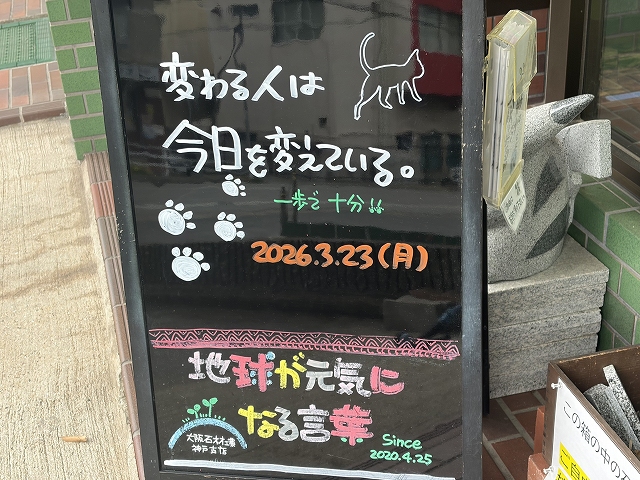 変わる人は
今日を変えている。
一歩で十分!!
2026.3.23(月)
地球が元気に
なる言葉
Since
2020.4.25
大阪石材工業
神戸支店
この箱の中の